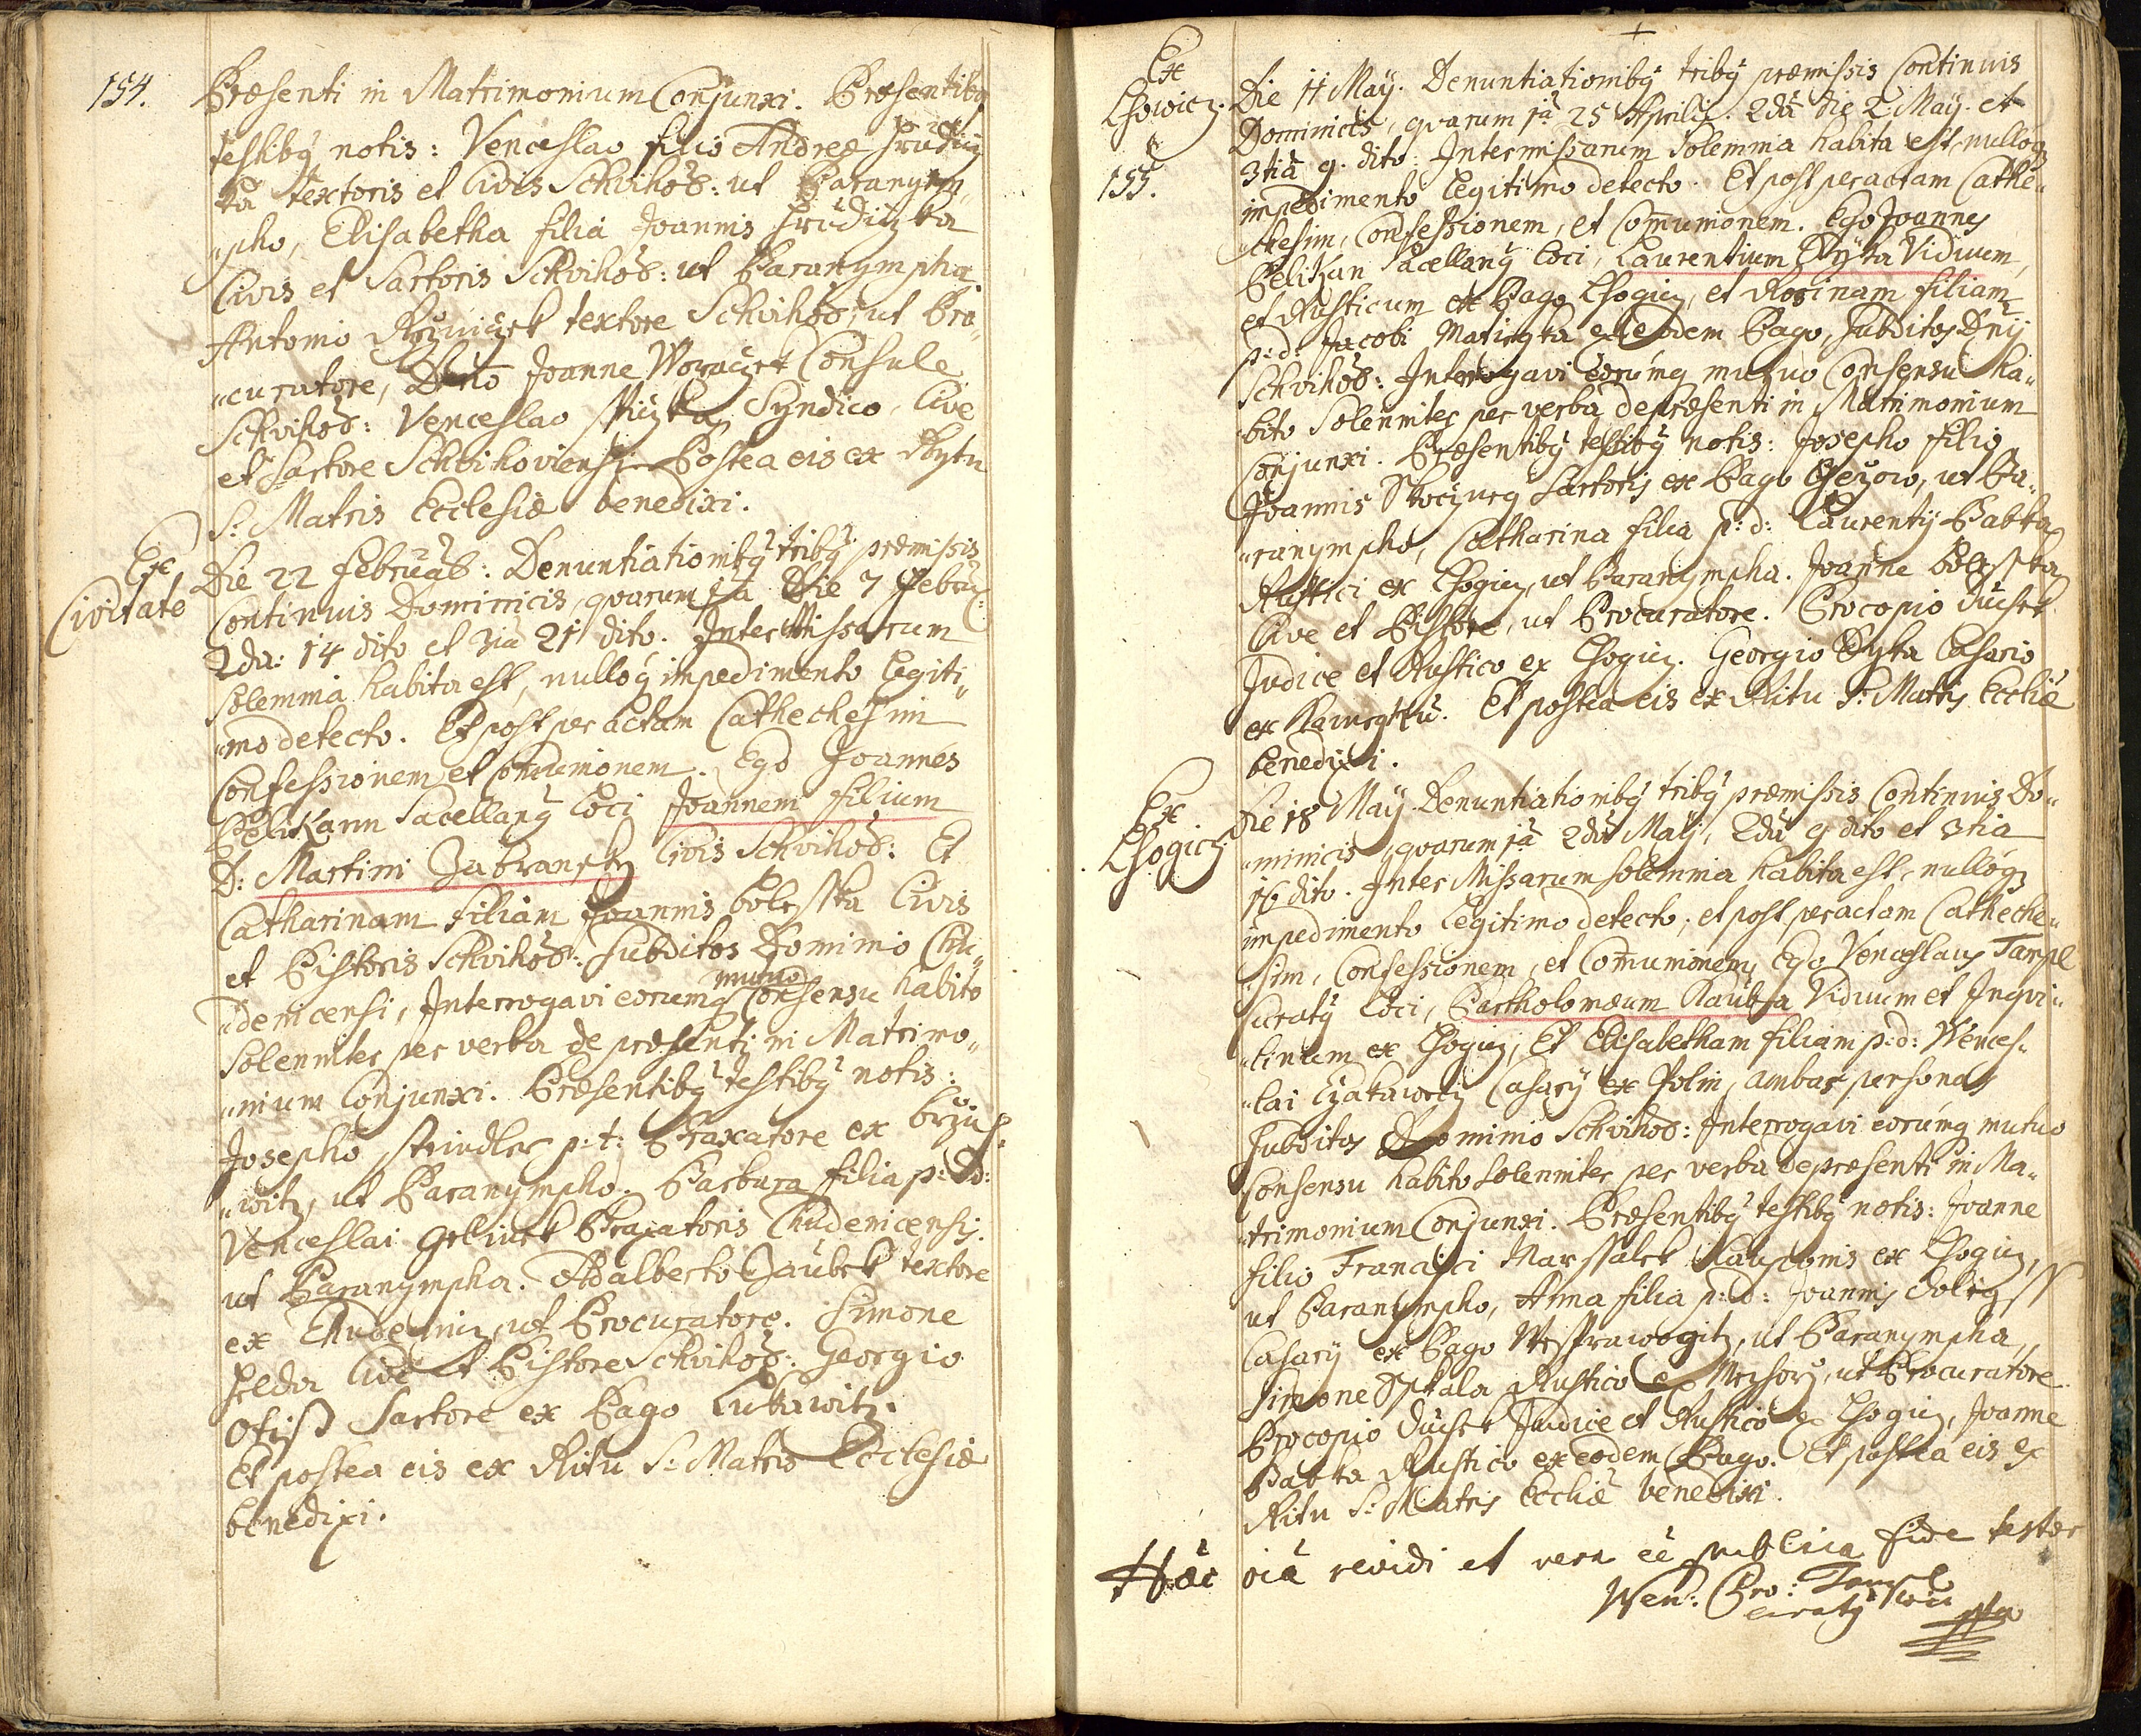 154.
Præsenti in Matrimonium Conjunxi. Præsentibq
testibq notis: Venceslao filio Andreæ Hrudicz
ka Textoris et Civis Schvihoõ: ut Paranym„
„pho, Elisabetha filia Joannis Hrudiczka
Civis et Sartoris Schvihoõ: ut Paranympha
Antonio textore Schvihoõ: ut Pro„
„curatore, Dno Joanne Woraczek Consule
Schvihoõ: Venceslao Syndico, Cive
et Sartore Schvihoviensi. Postea eis ex Rytu
S: Matris Ecclesiæ benedixi.
Ex
Civitate
Die 22 Februaõ: Denuntiationibq tribq præmissis
Continuis Dominicis, quarum 1a Die 7 Febru:
2da: 14 dito et 3ia 21 dito. Inter Missarum
solemnia habita est, nulloq impedimento Legiti„
„mo detecto. Et post peractam Cathechesim
Confessionem et Comunionem. Ego Joannes
Pelikann Sacellanq Loci Joannem filium
D: Martini Zabransky Civis Schvihoõ: Et
Catharinam filiam Joannis Bolesska Civis
et Pistoris Schvihoõ: Subditos Dominio Chu„
„denicensi, Interrogavi eorumq mutuo Consensu habito
Solenniter per verba de præsenti in Matrimo„
„nium Conjunxi. Præsentibq testibq notis:
Josepho Steindler p:t: Braxatore ex
„witz, ut Paranympho. Barbara filia p: D:
Venceslai Gelinek Braxatoris Chudenicensis.
ut Paranympha. Adalberto Daubek textore
ex Chudeniz, ut Procuratore. Simone
Helda Cive et Pistore Schvihoõ: Georgio
Otiss Sartore ex Pago Lukawitz.
Et postea eis ex Ritu S: Matris Ecclesiæ
benedixi.
Ex
Lhowicz.
155.
Die 11 May. Denuntiationibq tribq præmissis Continuis
Dominicis, quarum 1a 25 Aprilis. 2da die 2 May. et
3tia 9. dito: Inter missarum Solemnia habita est, nulloq
impedimento Legitimo detecto. Et post peractam Cathe„
„chesim, Confessionem, et Comunionem. Ego Joannes
Pelikan Sacellanq Loci, Laurentium Dyka Viduum,
et Rusticum ex Pago Lhogicz, et Rosinam filiam
p:d: Jacobi Matiegka ex eodem Pago, Subditos Dny
Schvihoõ: Interrogavi eorumq mutuo Consensu ha„
„bito Solenniter per verba de præsenti in Matrimonium
Conjunxi. Præsentibq testibq notis: Josepho filio
Joannis Sartoris ex Pago ut Pa„
„ranympho, Catharina filia p:d: Laurenty Babka
Rustici ex Lhogicz, ut Paranympha. Joanne Bolesska
Cive et Pistore, ut Procuratore. Procopio Duchek
Judice et Rustico ex Lhogicz. Georgio Dyka Casario
ex Et postea eis ex Ritu S: Matris Eccliæ
benedixi.
Ex
Lhogicz.
Die 18 May. Denuntiationibq tribq præmissis Continuis Do„
„minicis, quarum 1a 2da May, 2da 9 dito et 3tia
16 dito. Inter Missarum solemnia habita est, nulloq
impedimento Legitimo detecto, et post peractam Catheche„
„sim, Confessionem, et Comunionem, Ego Venceslaus Tampl
Curatq Loci, Bartholomæum Kauba Viduum et Inqvi„
„linum ex Lhogicz, Et Elisabetham filiam p:d: Wences„
„lai Casary ex Polin, ambas personas
Subditos Dominio Schvihoõ: Interrogavi eorumq mutuo
Consensu habito Solenniter per verba de præsenti in Ma„
„trimonium Conjunxi. Præsentibq testibq notis: Joanne
filio Francisci Marssalek Cauponis ex Lhogicz,
ut Paranympho, Anna filia p:d: Joannis
Casary ex Pago ut Paranympha,
Simone Sskala Rustico ex ut Procuratore.
Procopio Duchek Judice et Rustico ex Lhogicz, Joanne
Babka Rustico ex eodem Pago. Et postea eis ex
Ritu S: Matris Eccliæ benedixi.
Hæc oia revidi et vera eē publica fide testor
Wen: Tampl
curatq